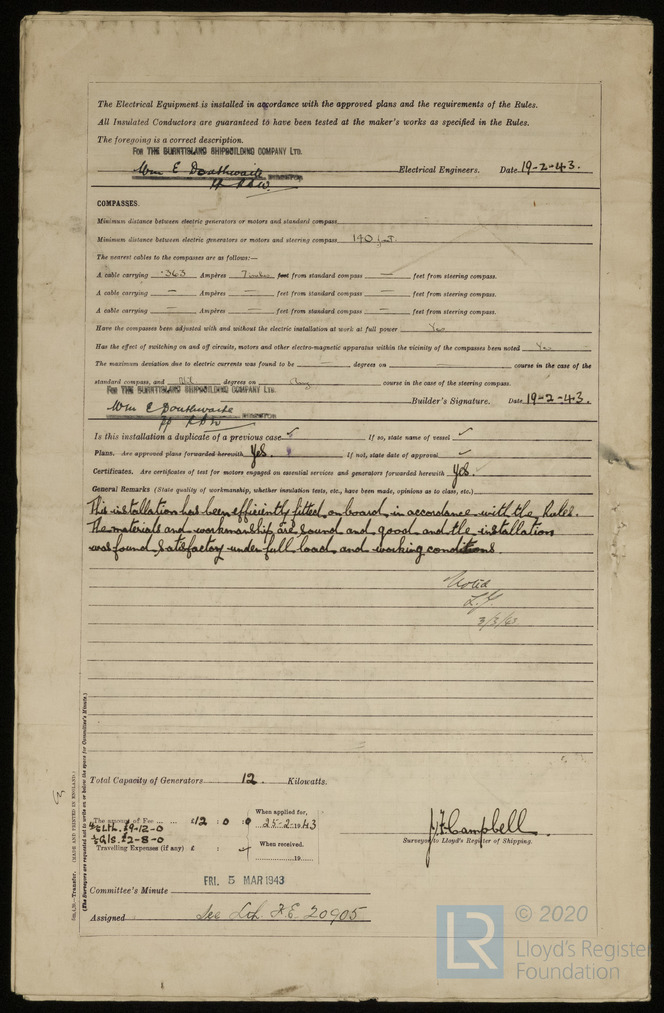 The Electrical Equipment is installed in accordance with the approved plans and the requirements of the Rules.
All Insulated Conductors are guaranteed to have been tested at the maker's works as specified in the Rules.
The foregoing is a correct description.
FOR THE BURNTISLAND SHIPBUILDING COMPANY LTD.
Wm E Douthwaite Electrical Engineers. Date 19-2-43.
COMPASSES.
Minimum distance between electric generators or motors and standard compass
Minimum distance between electric generators or motors and steering compass 140 feet.
The nearest cables to the compasses are as follows:—
A cable carrying .363 Ampères 7 feet from standard compass — feet from steering compass.
A cable carrying — Ampères — feet from standard compass — feet from steering compass.
A cable carrying — Ampères — feet from standard compass — feet from steering compass.
Have the compasses been adjusted with and without the electric installation at work at full power Yes
Has the effect of switching on and off circuits, motors and other electro-magnetic apparatus within the vicinity of the compasses been noted Yes
The maximum deviation due to electric currents was found to be — degrees on — course in the case of the
standard compass, and Nil degrees on Any course in the case of the steering compass.
FOR THE BURNTISLAND SHIPBUILDING COMPANY LTD.
Wm E Douthwaite Builder's Signature. Date 19-2-43.
Is this installation a duplicate of a previous case If so, state name of vessel
Plans. Are approved plans forwarded herewith Yes. If not, state date of approval
Certificates. Are certificates of test for motors engaged on essential services and generators forwarded herewith Yes.
General Remarks (State quality of workmanship, whether insulation tests, etc., have been made, opinions as to class, etc.)
This installation has been efficiently fitted on board in accordance with the Rules.
The materials and workmanship are sound and good and the installation
was found satisfactory under full load and working conditions.
Noted
3/3/43
Total Capacity of Generators 12 Kilowatts.
The amount of Fee ... ... £12 : 0 : 0 When applied for, 25-2-1943
£9-12-0
£2-8-0
Travelling Expenses (if any) £ : : When received. 19
J. F. Campbell.
Surveyor to Lloyd's Register of Shipping.
Committee's Minute FRI. 5 MAR 1943
Assigned See F.E. 20905
Transfer. (MADE AND PRINTED IN ENGLAND.)
(The Surveyors are requested not to write on or below the space for Committee's Minute.)
© 2020
Lloyd's Register
Foundation
LR